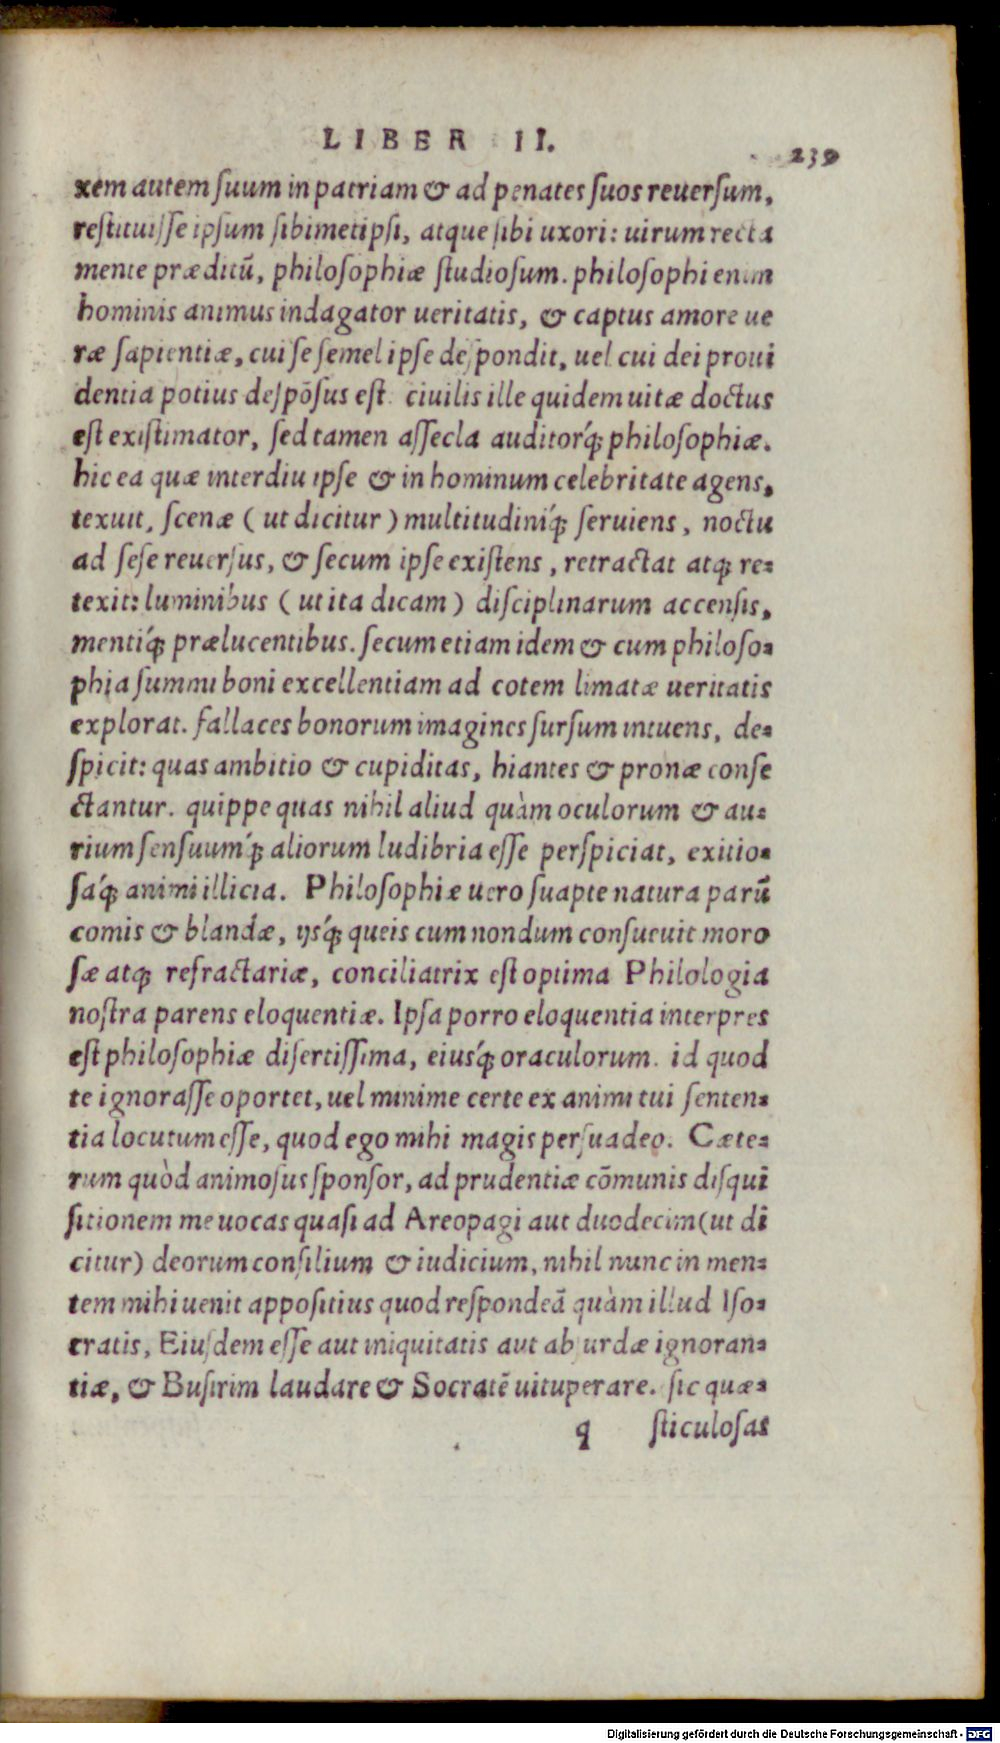 LIBER II.
239
xem autem suum in patriam & ad penates suos reuersum,
restituisse ipsum sibimetipsi, atque sibi uxori: uirum recta
mente præditū, philosophiæ studiosum. philosophi enim
hominis animus indagator ueritatis, & captus amore ue
ræ sapientiæ, cui se semel ipse despondit, uel cui dei proui
dentia potius despōsus est. ciuilis ille quidem uitæ doctus
est existimator, sed tamen assecla auditorq́; philosophiæ.
hic ea quæ interdiu ipse & in hominum celebritate agens,
texuit, scenæ (ut dicitur) multitudiniq́; seruiens, noctu
ad sese reuersus, & secum ipse existens, retractat atq; re-
texit: luminibus (ut ita dicam) disciplinarum accensis,
mentiq́; prælucentibus. secum etiam idem & cum philoso-
phia summi boni excellentiam ad cotem limatæ ueritatis
explorat. fallaces bonorum imagines sursum intuens, de-
spicit: quas ambitio & cupiditas, hiantes & pronæ conse
ctantur. quippe quas nihil aliud quàm oculorum & au-
rium sensuumq́; aliorum ludibria esse perspiciat, exitio-
saq́; animi illicia. Philosophiæ uero suapte natura parū
comis & blandæ, ijsq́; queis cum nondum consueuit moro
sæ atq; refractariæ, conciliatrix est optima Philologia
nostra parens eloquentiæ. Ipsa porro eloquentia interpres
est philosophiæ disertissima, eiusq́; oraculorum. id quod
te ignorasse oportet, uel minime certe ex animi tui senten-
tia locutum esse, quod ego mihi magis persuadeo. Cæte-
rum quòd animosus sponsor, ad prudentiæ cōmunis disqui
sitionem me uocas quasi ad Areopagi aut duodecim (ut di
citur) deorum consilium & iudicium, nihil nunc in men-
tem mihi uenit appositius quod respondeā quàm illud Iso-
cratis, Eiusdem esse aut iniquitatis aut absurdæ ignoran-
tiæ, & Busirim laudare & Socratē uituperare. sic quæ-
q sticulosas
Digitalisierung gefördert durch die Deutsche Forschungsgemeinschaft - DFG